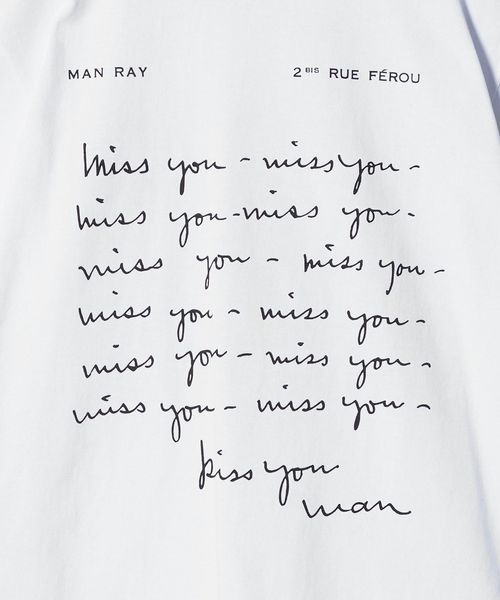 MAN RAY 2 BIS RUE FÉROU
Miss you - miss you -
miss you - miss you -
miss you - miss you -
miss you - miss you -
miss you - miss you -
miss you - miss you -
kiss you
man